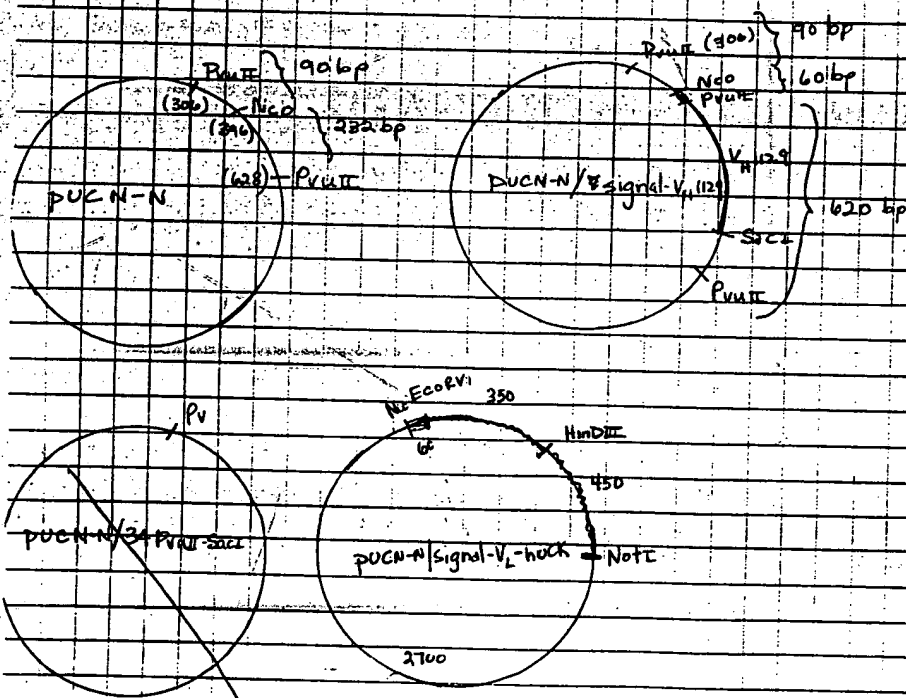 PvuII
(306)
90 bp
Nco
(396)
232 bp
(628) - PvuII
pUCN-N
PvuII (306)
90 bp
Nco
PvuII
60 bp
VH 129
pUCN-N/signal-VH (129
SacI
620 bp
PvuII
Pv
pUCN-N/34 PvuII-SacI
EcoRV
350
HinDIII
450
pUCN-N/signal-VL-huCk
NotI
2700